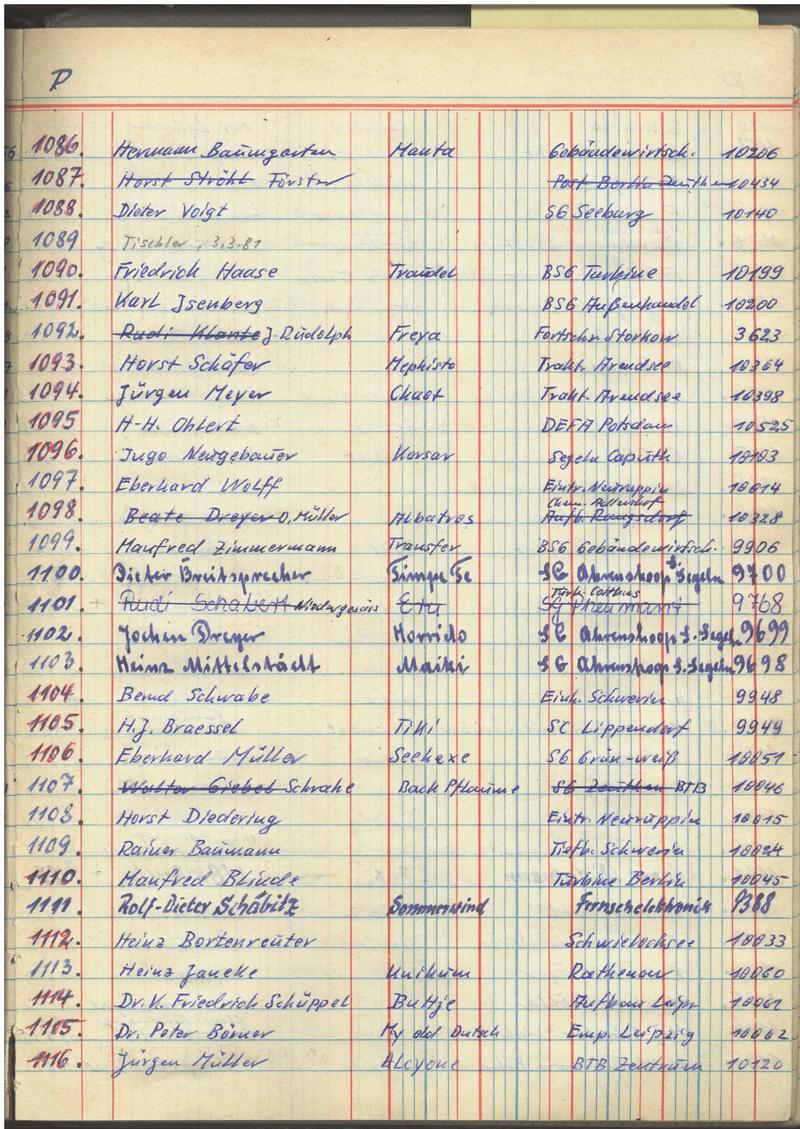 P
1086. Hermann Baumgarten Manta Gebäudewirtsch. 10206
1087. Horst Ströhl Förster Post Berlin Zeuthen 10434
1088. Dieter Voigt SG Seeburg 10140
1089 Tischler, 3.3.81
1090. Friedrich Haase Traudel BSG Turbine 10199
1091. Karl Isenberg BSG Außenhandel 10200
1092. Rudi Klante J. Rudolph Freya Fortschr. Storkow 3623
1093. Horst Schäfer Mephisto Trakt. Arendsee 10364
1094. Jürgen Meyer Chaot Trakt. Arendsee 10398
1095 H-H. Ohlert DEFA Potsdam 10525
1096. Ingo Neugebauer Korsar Segeln Caputh 10103
1097. Eberhard Wolff Eintr. Neuruppin 10014
1098. Beate Dreyer O. Müller Albatros Aufb. Rangsdorf Chem. 10328
1099. Manfred Zimmermann Transfer BSG Gebäudewirtsch. 9906
1100. Dieter Breitsprecher Timpe Te SG Ahrenshoop S. Segeln 9700
1101. Rudi Schabert SG Turb. Cottbus 9768
1102. Jochen Dreyer Horrido SG Ahrenshoop S. Segeln 9699
1103. Heinz Mittelstädt Maiki SG Ahrenshoop S. Segeln 9698
1104. Bernd Schwabe Einh. Schwerin 9948
1105. H.J. Braessel Tiki SC Lippendorf 9949
1106. Eberhard Müller Seehexe SG Grün-weiß 10051
1107 Walter Giebel Schrahe Back Pflaume SG Zeuthen BTB 10046
1108. Horst Diedering Eintr. Neuruppin 10015
1109. Rainer Baumann Tiefb. Schwerin 10024
1110. Manfred Blinde Turbine Berlin 10045
1111. Rolf-Dieter Schäbitz Sommerwind Fernsehelektronik 9388
1112. Heinz Bortenreuter Schwielochsee 10033
1113. Heinz Janeke Unikum Rathenow 10060
1114. Dr. K. Friedrich Schüppel Buttje Aufbau Leipz 10061
1115. Dr. Peter Börner My old Dutch Emp. Leipzig 10062
1116. Jürgen Müller Alcyone BTB Zentrum 10120